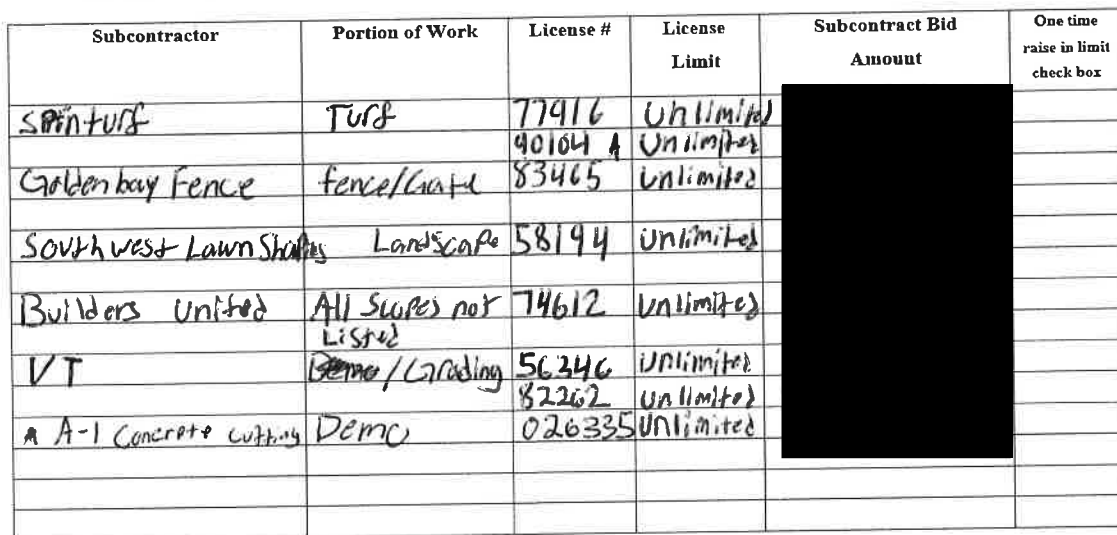 Subcontractor Portion of Work License # License Limit Subcontract Bid Amount One time raise in limit check box
Spinturf Turf 77916 Unlimited
90104 A Unlimited
Goldenbay Fence fence/Gate 83465 Unlimited
Southwest Lawn Landscape 58194 Unlimited
Builders United All Scopes not Listed 74612 Unlimited
VT Demo/Grading 56346 Unlimited
82262 Unlimited
A-1 Concrete cutting Demo 026335 Unlimited